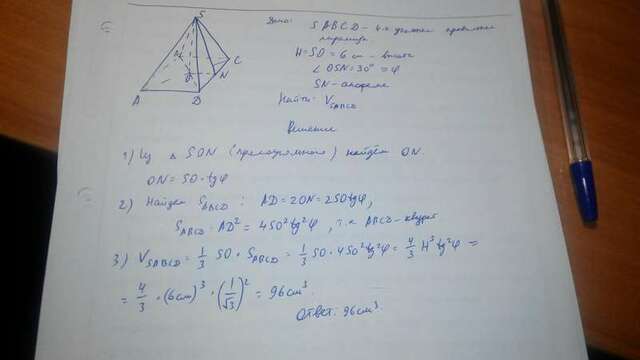 S
M
B
C
N
A
D
Дано: SABCD - 4х-уголная правильная
пирамида
H = SO = 6 см - высота
∠ OSN = 30° = φ
SN - апофема
Найти: V_SABCD
Решение
1) Из Δ SON (прямоугольного) найдём ON.
ON = SO · tgφ
2) Найдём S_ABCD : AD = 2ON = 2SOtgφ,
S_ABCD = AD² = 4SO²tg²φ, т.к ABCD - квадрат
3) V_SABCD = 1/3 SO · S_ABCD = 1/3 SO · 4SO²tg²φ = 4/3 H³tg²φ =
= 4/3 · (6см)³ · (1/√3)² = 96см³.
Ответ: 96см³.